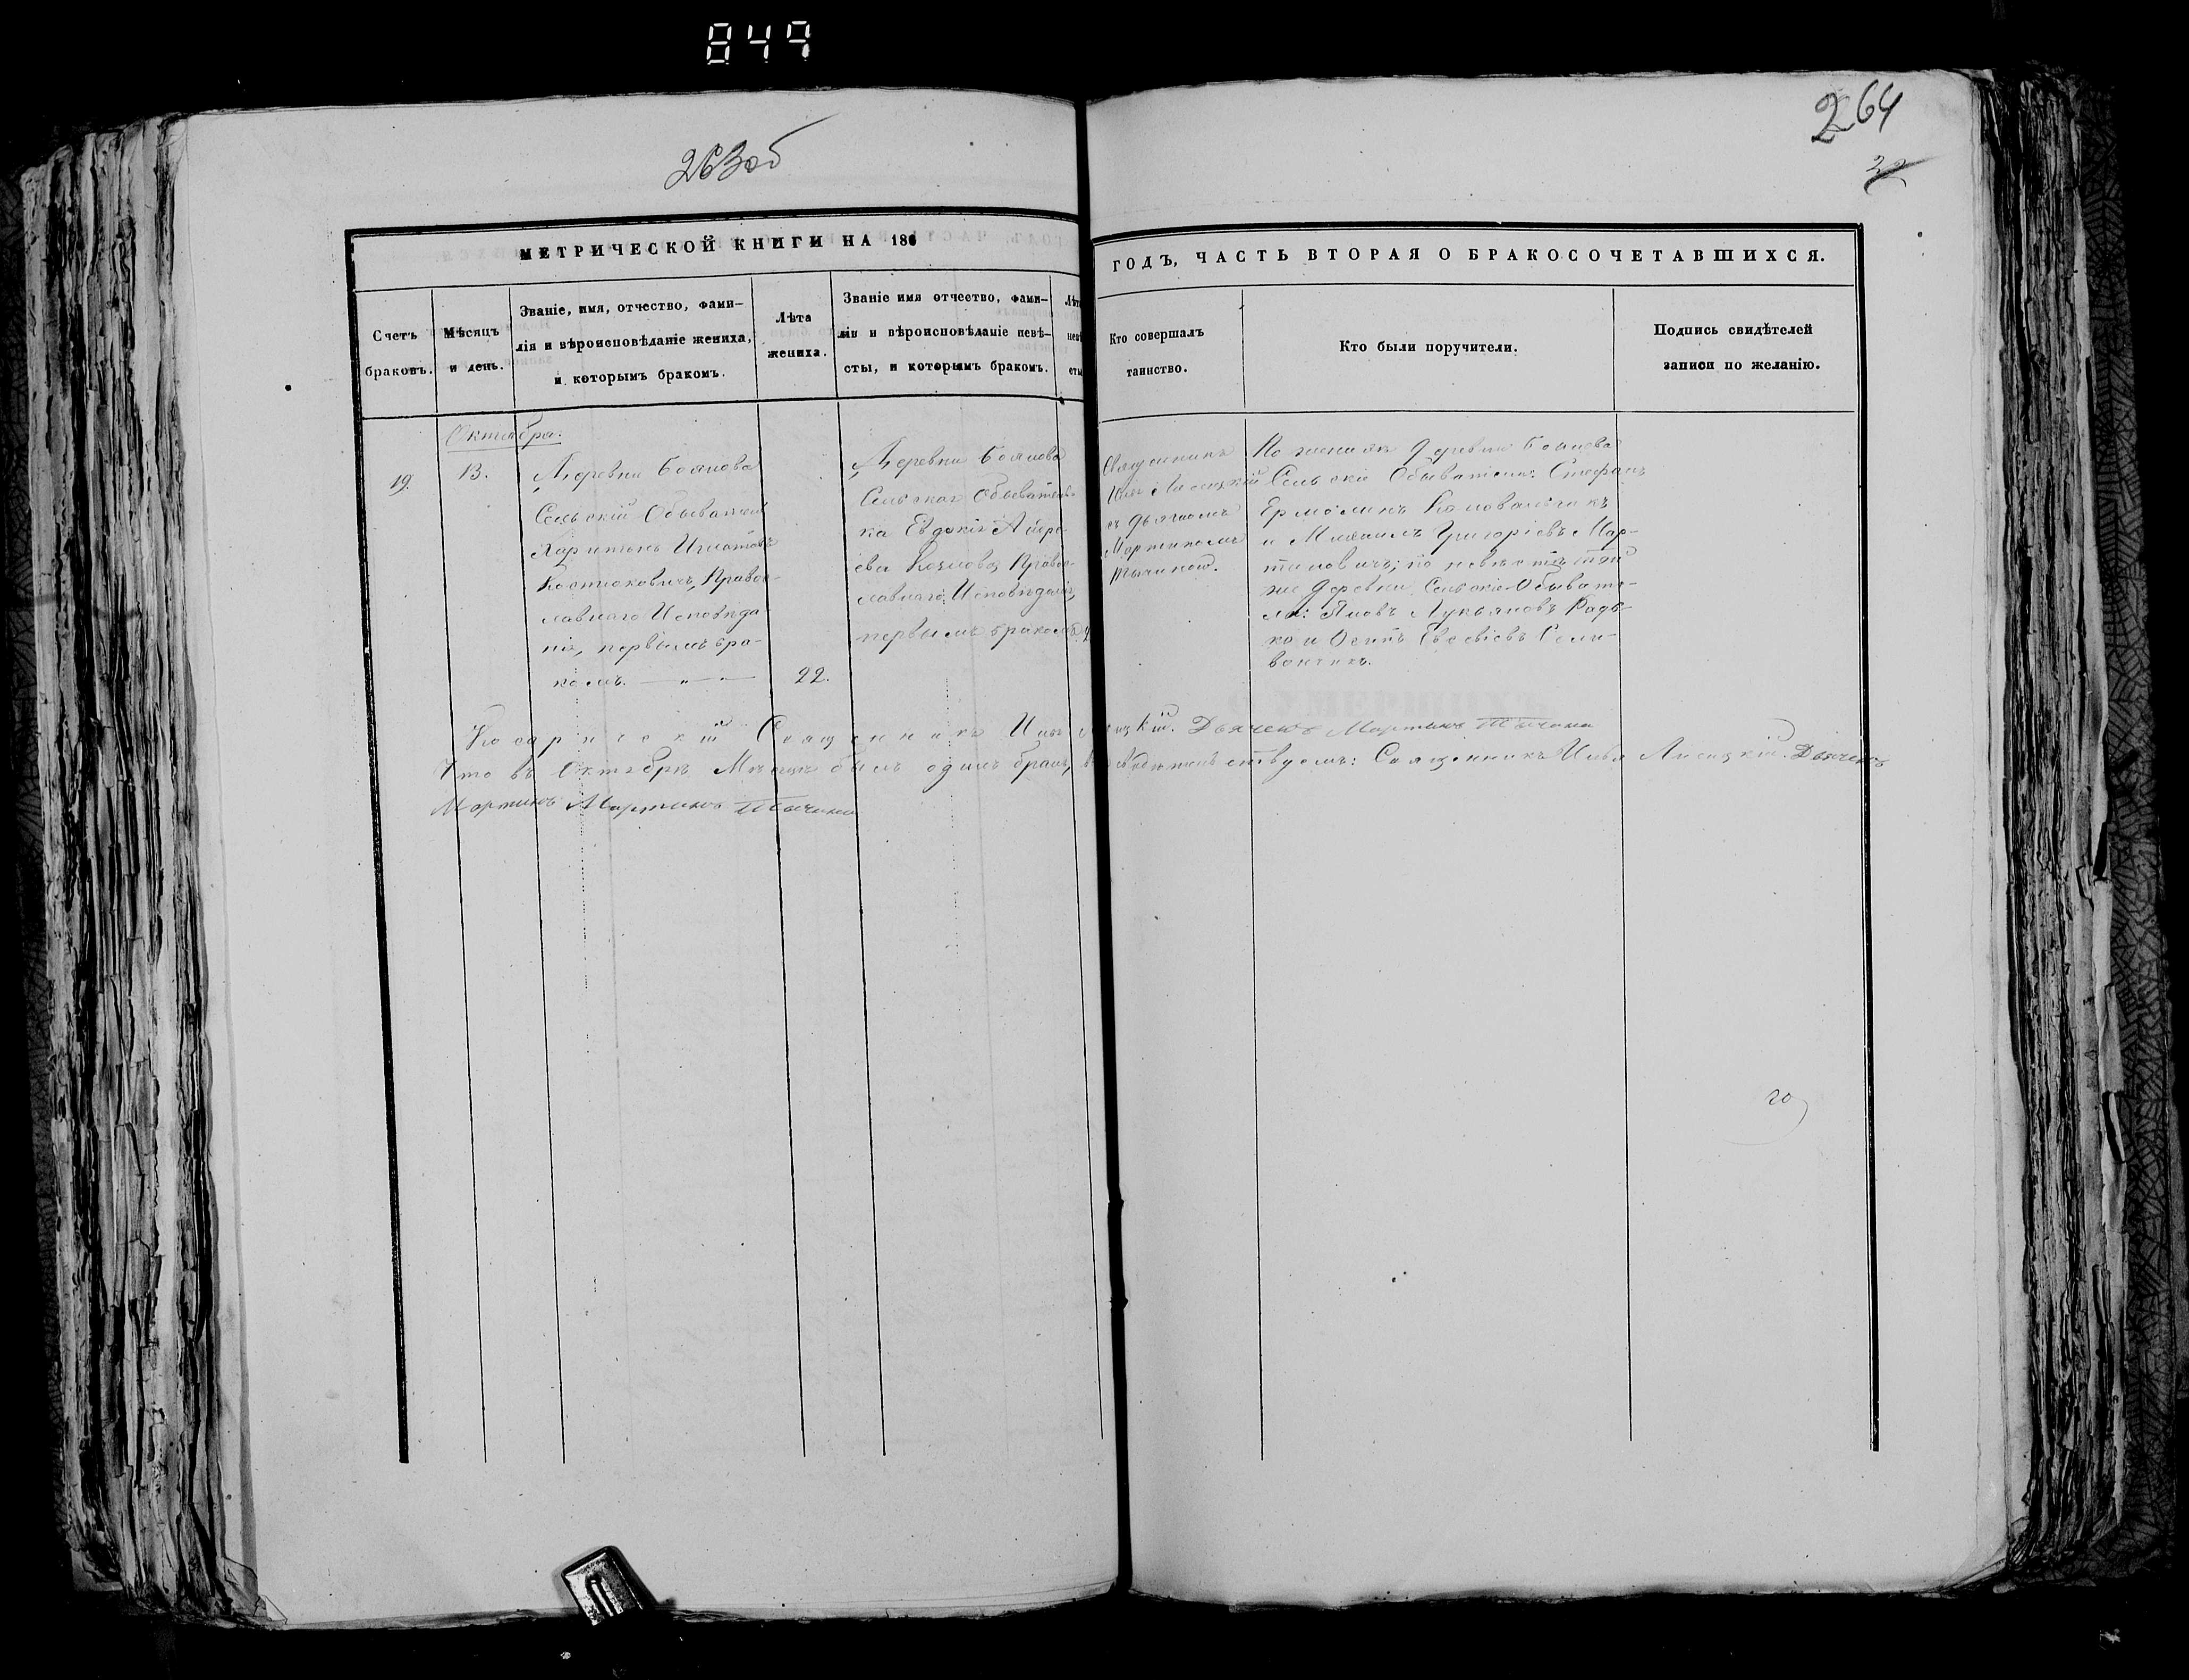 849
263об
264
22
МЕТРИЧЕСКОЙ КНИГИ НА 186
ГОДЪ, ЧАСТЬ ВТОРАЯ О БРАКОСОЧЕТАВШИХСЯ.
Счетъ
браковъ.
Мѣсяцъ
и день.
Званіе, имя, отчество, фами-
лія и вѣроисповѣданіе жениха,
и которымъ бракомъ.
Лѣта
жениха.
Званіе имя отчество, фами-
лія и вѣроисповѣданіе невѣ-
сты, и которымъ бракомъ.
Кто совершалъ
таинство.
Кто были поручители.
Подпись свидѣтелей
записи по желанію.
Октября.
19.
13.
Деревни Боянова
Сельскій Обыватель
Харитонъ Игнатовъ
Костюковичъ, Правос-
лавнаго Исповѣда-
нія, первымъ бра-
комъ.
22.
Деревни Боянова
Сельская Обыватель-
ка Евдокія
Правос-
лавнаго Исповѣданія,
первымъ бракомъ
Священникъ
Илья Лисицкій
съ Дьячкомъ
Мартиномъ
Тычиною.
По женихѣ Деревни Боянова
Сельскіе Обыватели: Стефанъ
Ермолинъ Коновальчикъ
и Михаилъ Григоріевъ Мар-
тиновичъ; по невѣстѣ той
же Деревни Сельскіе Обывате-
ли: Яковъ Лукьяновъ Радь-
ко и Осипъ Евсевіевъ Сели-
вончикъ.
Косаричскій Священникъ Илья Лисицкій. Дьячекъ Мартинъ Тычина
Что въ Октябрѣ Мѣсяцѣ былъ одинъ бракъ, въ томъ Священникъ Илья Лисицкій. Дьячекъ
Мартинъ Мартиновъ Тычина
20